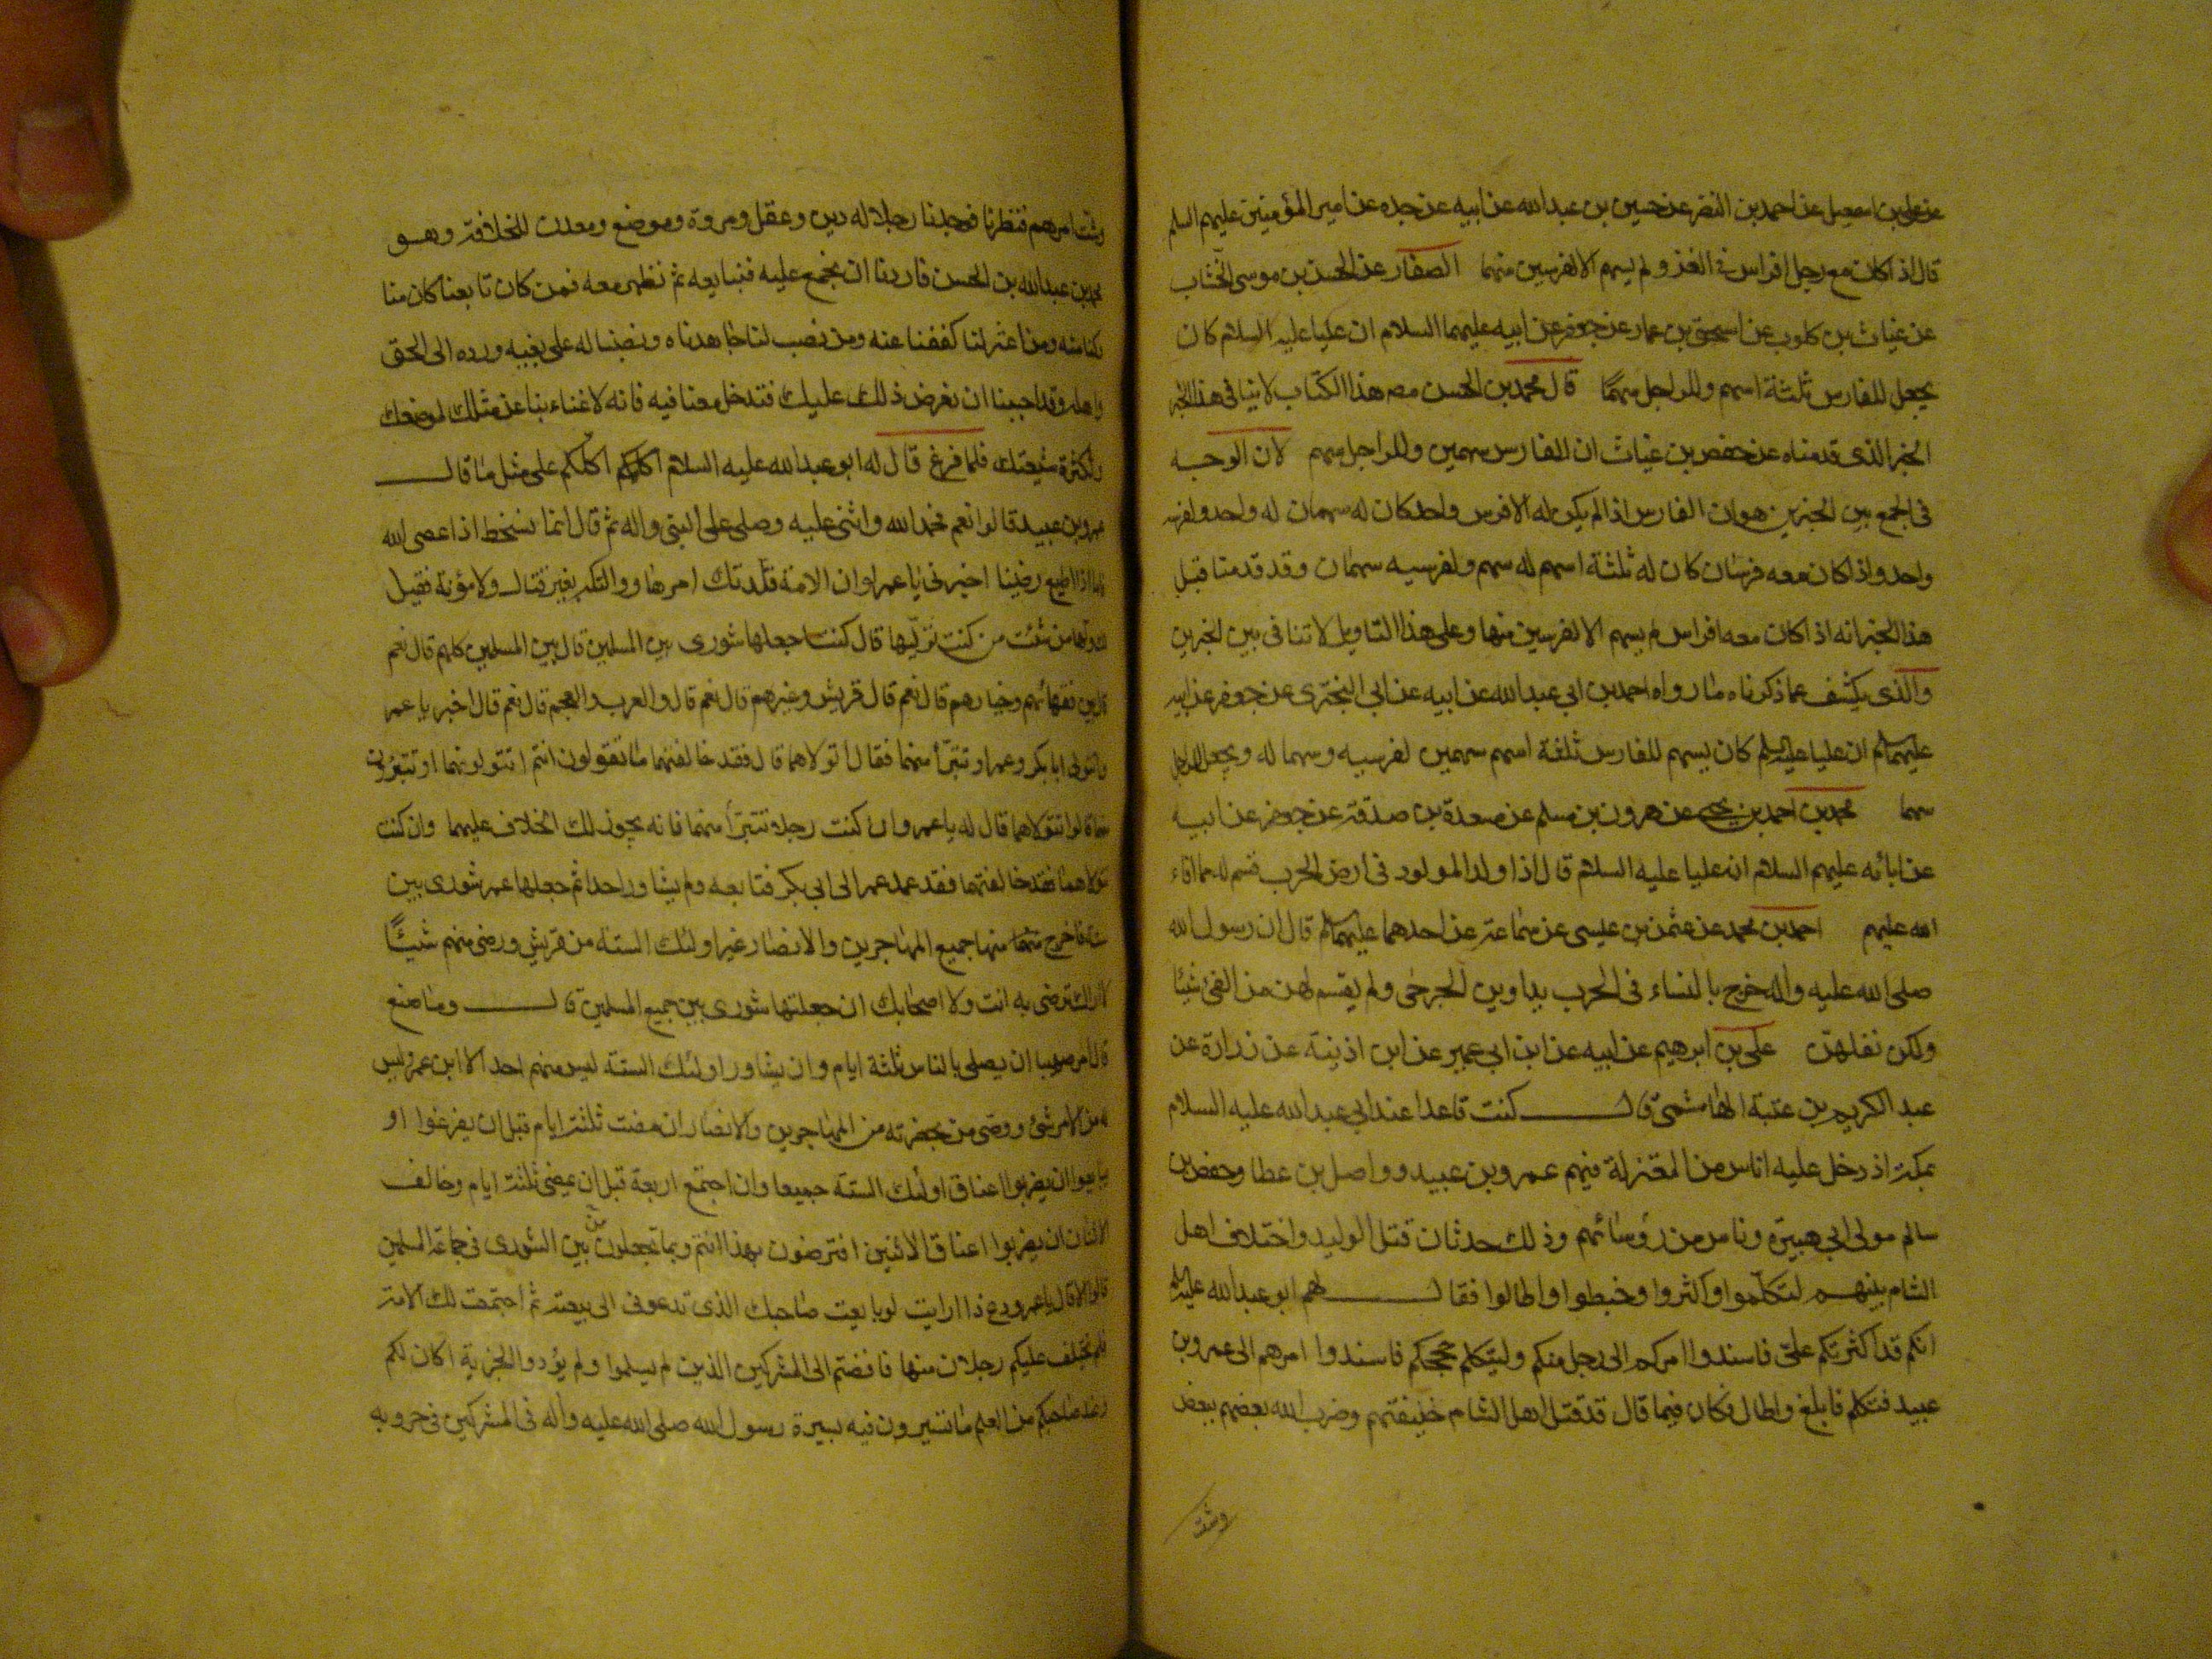 عن علي بن اسمعيل عن احمد بن النضر عن حسين بن عبدالله عن ابيه عن جده عن امير المؤمنين عليهم السلم
قال اذا كان مع رجل افراس في الغزو لم يسهم الا لفرسين منها الصفار عن الحسن بن موسى الخشاب
عن غياث بن كلوب عن اسحق بن عمار عن جعفر عن ابيه عليهما السلام ان عليا عليه السلام كان
يجعل للفارس ثلثة اسهم وللراجل سهمًا قال محمد بن الحسن مص هذا الكتاب لا ينافي هذا الخبر
الخبر الذي قدمناه عن حفص بن غياث ان للفارس سهمين وللراجل سهم لان الوجه
في الجمع بين الخبرين هو ان الفارس اذا لم يكن له الا فرس واحد كان له سهمان له واحد ولفرسه
واحد واذا كان معه فرسان كان له ثلثة اسهم له سهم ولفرسيه سهمان وقد قدمنا قبل
هذا الخبر انه اذا كان معه افراس لم يسهم الا لفرسين منها وعلى هذا التاويل لا تنافى بين الخبرين
والذي يكشف عما ذكرناه ما رواه احمد بن ابي عبدالله عن ابيه عن ابي البختري عن جعفر عن ابيه
عليهما السلم ان عليا عليه السلم كان يسهم للفارس ثلثة اسهم سهمين لفرسيه وسهما له ويجعل للراجل
سهما محمد بن احمد بن يحيى عن هرون بن مسلم عن مسعدة بن صدقة عن جعفر عن ابيه
عن ابائه عليهم السلام ان عليا عليه السلام قال اذا ولد المولود في ارض الحرب قسم له مما افاء
الله عليهم احمد بن محمد عن عثمن بن عيسى عن سماعة عن احدهما عليهما السلم قال ان رسول الله
صلى الله عليه واله خرج بالنساء في الحرب يداوين الجرحى ولم يقسم لهن من الفئ شيئا
ولكن نفلهن علي بن ابرهيم عن ابيه عن ابن ابي عمير عن ابن اذينة عن زرارة عن
عبد الكريم بن عتبة الهاشمي قال كنت قاعدا عند ابي عبدالله عليه السلام
بمكة اذ دخل عليه اناس من المعتزلة فيهم عمرو بن عبيد وواصل بن عطا وحفص بن
سالم مولى ابي هبيرة وناس من رؤسائهم وذلك حدثان قتل الوليد واختلاف اهل
الشام بينهم لتكلموا واكثروا وخبطوا واطالوا فقال لهم ابو عبدالله عليه السلم
انكم قد اكثرتم علي فاسندوا امركم الى رجل منكم وليتكلم بحججكم فاسندوا امرهم الى عمرو بن
عبيد فتكلم فابلغ واطال فكان فيما قال قد قتل اهل الشام خليفتهم وضرب الله بعضهم ببعض
وشتت
وشتت امرهم فنظرنا فوجدنا رجلا له دين وعقل ومروة وموضع ومعدن للخلافة وهو
محمد بن عبدالله بن الحسن فاردنا ان نجتمع عليه فنبايعه ثم نظهر معه فمن كان تابعنا كان منا
وكنا منه ومن اعتزلنا كففنا عنه ومن نصب لنا جاهدناه ونصبنا له على بغيه ورده الى الحق
واهله وقد احببنا ان نعرض ذلك عليك فتدخل معنا فيه فانه لا غناء بنا عن مثلك لموضعك
ولكثرة شيعتك فلما فرغ قال له ابو عبدالله عليه السلام اكلكم على مثل ما قال
عمرو بن عبيد قالوا نعم فحمد الله واثنى عليه وصلى على النبي واله ثم قال انما نسخط اذا عصى الله
فاما اذا اطيع رضينا اخبرني يا عمرو ان الامة قلدتك امرها وولتك بغير قتال ولا مؤنة فقيل
لك ولها من شئت من كنت توليها قال كنت اجعلها شورى بين المسلمين قال بين المسلمين كلهم قال نعم
قال بين فقهائهم وخيارهم قال نعم قال قريش وغيرهم قال نعم قال والعرب والعجم قال نعم قال اخبرني يا عمرو
اتتولى ابا بكر وعمر او تتبرأ منهما فقال اتولاهما قال فقد خالفتهما ما تقولون انتم اتتولونهما او تتبرؤن
منهما قالوا نتولاهما قال له يا عمرو ان كنت رجلا تتبرأ منهما فانه يجوز لك الخلاف عليهما وان كنت
تتولاهما فقد خالفتهما فقد عمد عمر الى ابي بكر فتابعه ولم يشاور احدا ثم جعلها عمر شورى بين
ستة فاخرج منها جميع المهاجرين والانصار غير اولئك الستة من قريش ورضي منهم شيئًا
لا اراك ترضى به انت ولا اصحابك ان جعلتها شورى بين جميع المسلمين قال وما صنع
قال امر صهيبا ان يصلي بالناس ثلثة ايام وان يشاور اولئك الستة ليس منهم احد الا ابن عمر وليس
له من الامر شئ ووصى من بحضرته من المهاجرين والانصار ان مضت ثلثة ايام قبل ان يفرغوا او
يبايعوا ان يضربوا اعناق اولئك الستة جميعا وان اجتمع اربعة قبل ان يمضي ثلثة ايام وخالف
الاثنان ان يضربوا اعناق الاثنين افترضون بهذا انتم وبما تجعلون بين الشورى في جماعة المسلمين
قالوا لا قال يا عمرو دع ذا ارايت لو بايعت صاحبك الذي تدعوني الى بيعته ثم اجتمعت لك الامة
فلم يختلف عليكم رجلان منها فافضتم الى المشركين الذين لم يسلموا ولم يؤدوا الجزية اكان لكم
وعند صاحبكم من العلم ما تسيرون فيه بسيرة رسول الله صلى الله عليه واله في المشركين في حروبه